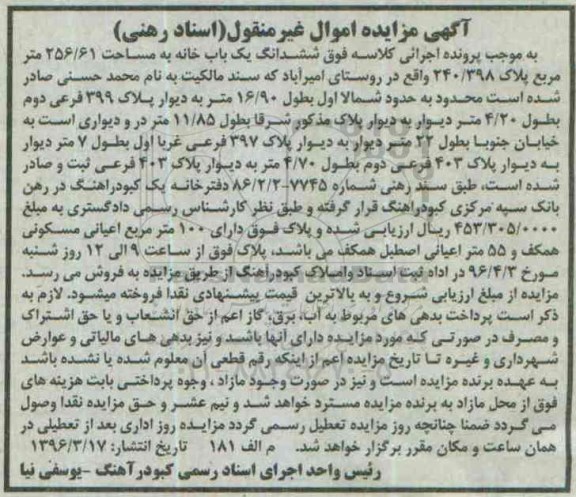 آگهی مزایده اموال غیرمنقول(اسناد رهنی)
به موجب پرونده اجرائی کلاسه فوق ششدانگ یک باب خانه به مساحت ۲۵۶/۶۱ متر
مربع پلاک ۲۴۰/۳۹۸ واقع در روستای امیرآباد که سند مالکیت به نام محمد حسنی صادر
شده است محدود به حدود شمالا اول بطول ۱۶/۹۰ متر به دیوار پلاک ۳۹۹ فرعی دوم
بطول ۴/۲۰ متر دیوار به دیوار پلاک مذکور شرقا بطول ۱۱/۸۵ متر در و دیواری است به
خیابان جنوبا بطول ۲۲ متر دیوار به دیوار پلاک ۳۹۷ فرعی غربا اول بطول ۷ متر دیوار
به دیوار پلاک ۴۰۳ فرعی دوم بطول ۴/۷۰ متر به دیوار پلاک ۴۰۳ فرعی ثبت و صادر
شده است، طبق سند رهنی شماره ۷۷۴۵-۸۶/۲/۲ دفترخانه یک کبودراهنگ در رهن
بانک سپه مرکزی کبودراهنگ قرار گرفته و طبق نظر کارشناس رسمی دادگستری به مبلغ
۴۵۳/۳۰۵/۰۰۰۰ ریال ارزیابی شده و پلاک فوق دارای ۱۰۰ متر مربع اعیانی مسکونی
همکف و ۵۵ متر اعیانی اصطبل همکف می باشد، پلاک فوق از ساعت ۹ الی ۱۲ روز شنبه
مورخ ۹۶/۴/۳ در اداه ثبت اسناد واملاک کبودرآهنگ از طریق مزایده به فروش می رسد.
مزایده از مبلغ ارزیابی شروع و به بالاترین قیمت پیشنهادی نقدا فروخته میشود. لازم به
ذکر است پرداخت بدهی های مربوط به آب، برق، گاز اعم از حق انشعاب و یا حق اشتراک
و مصرف در صورتی که مورد مزایده دارای آنها باشد و نیز بدهی های مالیاتی و عوارض
شهرداری و غیره تا تاریخ مزایده اعم از اینکه رقم قطعی آن معلوم شده یا نشده باشد
به عهده برنده مزایده است و نیز در صورت وجود مازاد ، وجوه پرداختی بابت هزینه های
فوق از محل مازاد به برنده مزایده مسترد خواهد شد و نیم عشر و حق مزایده نقدا وصول
می گردد ضمنا چنانچه روز مزایده تعطیل رسمی گردد مزایده روز اداری بعد از تعطیلی در
همان ساعت و مکان مقرر برگزار خواهد شد. م الف ۱۸۱ تاریخ انتشار: ۱۳۹۶/۳/۱۷
رئیس واحد اجرای اسناد رسمی کبودرآهنگ -یوسفی نیا